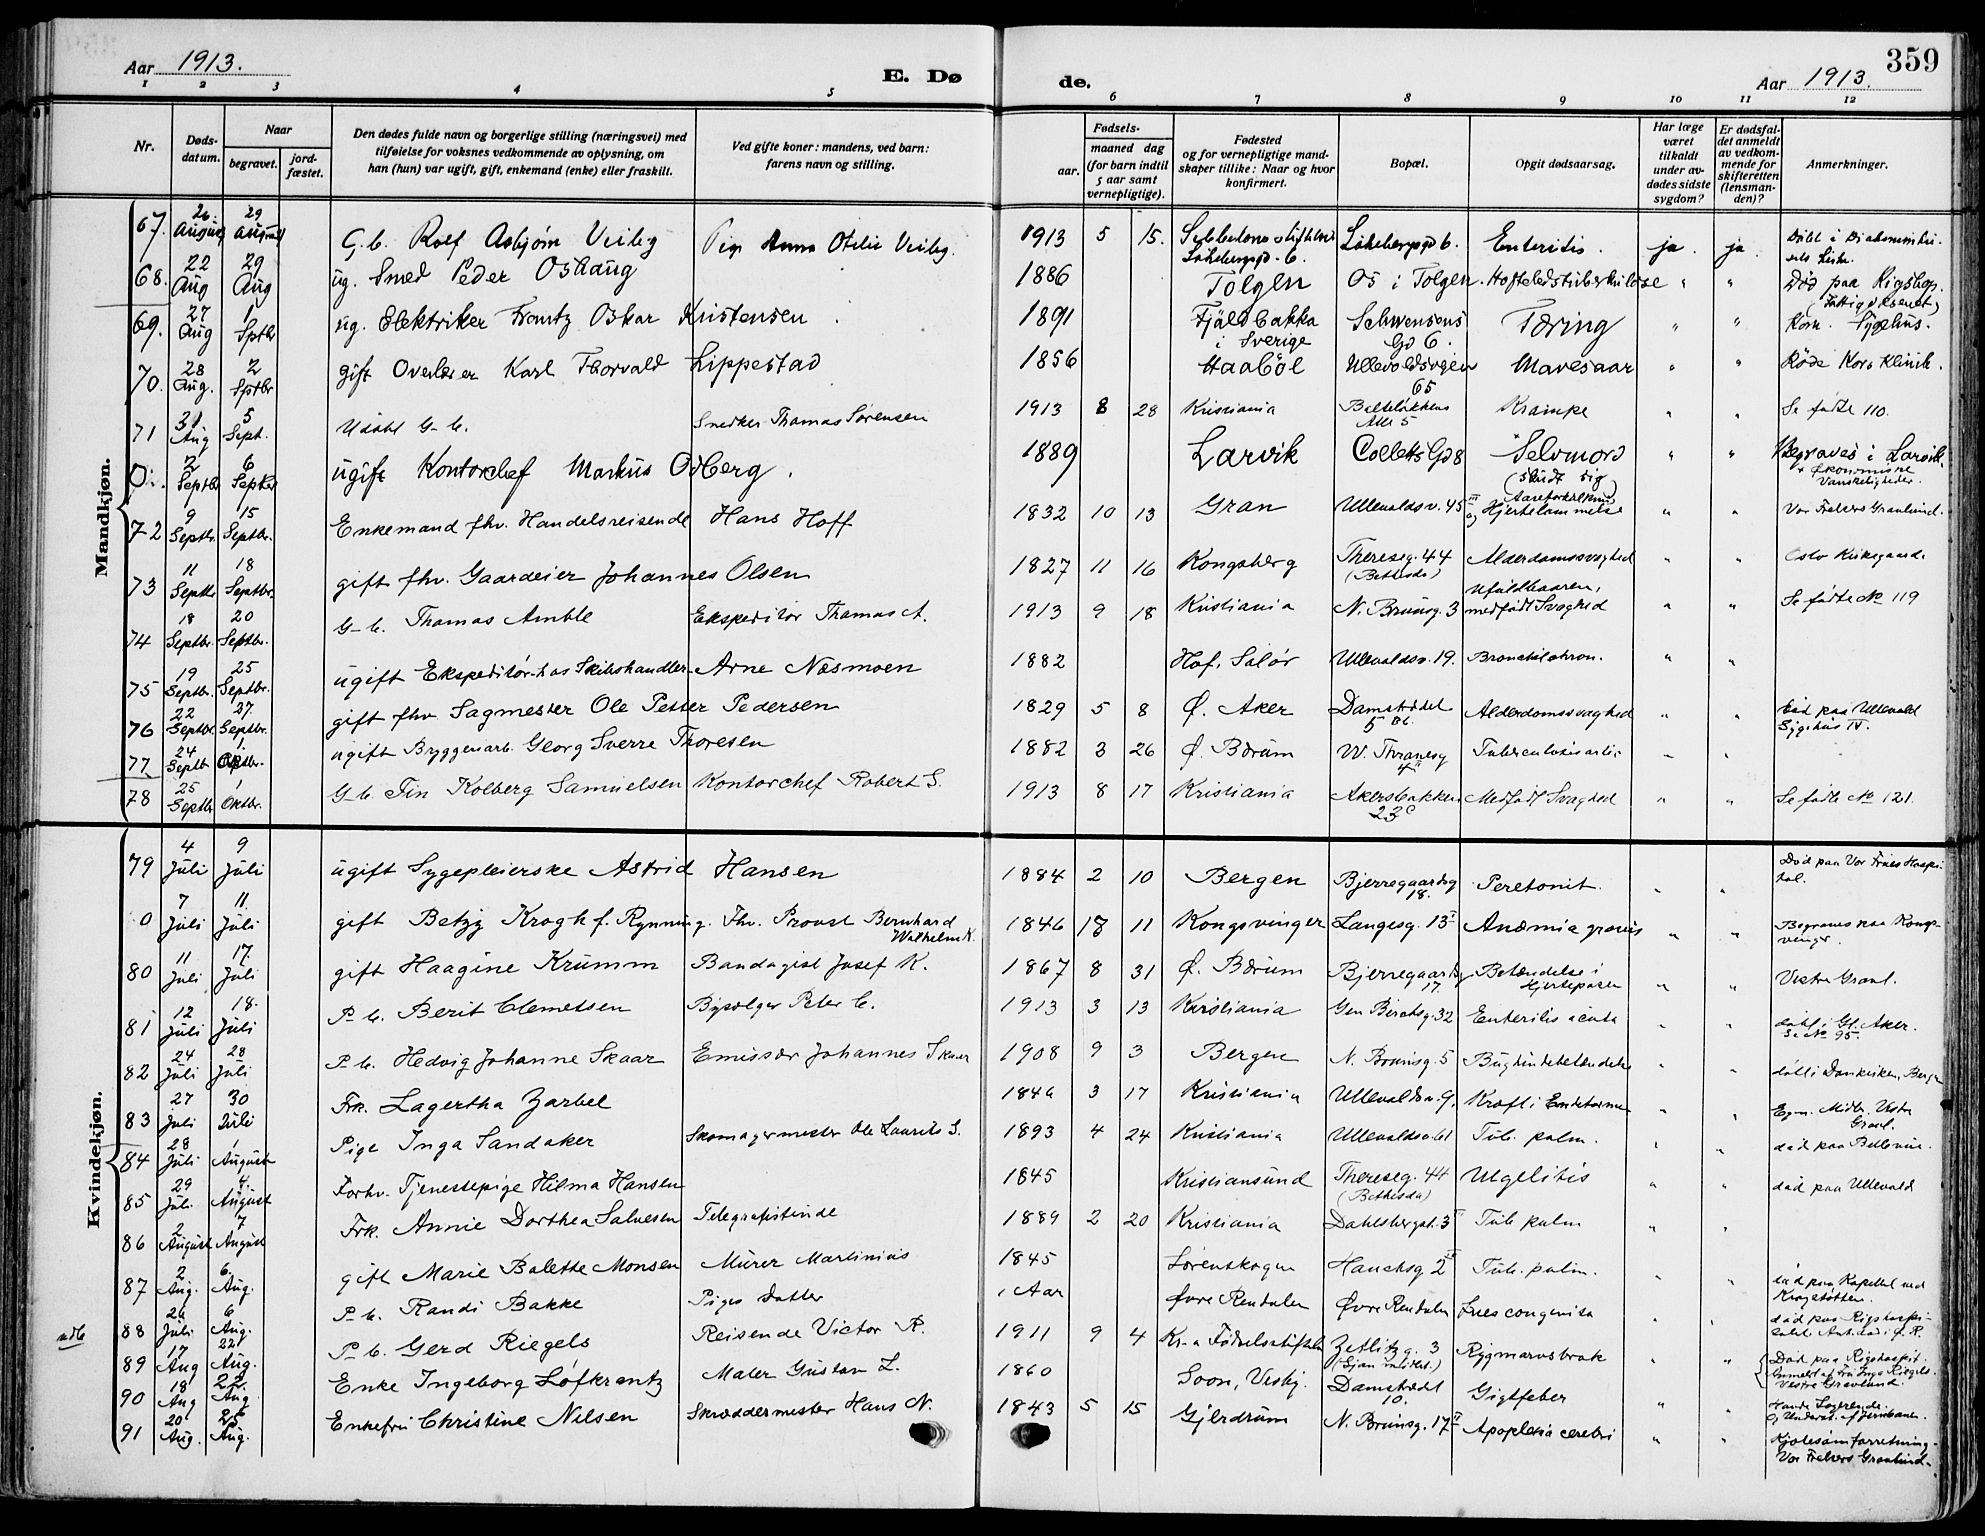 359
Aar 1913. E. Dø de. Aar 1913.
1 2 3 4 5 6 7 8 9 10 11 12
Nr. Døds-datum. Naar begravet. jord-fæstet. Den dødes fulde navn og borgerlige stilling (næringsvei) med tilføielse for voksnes vedkommende av oplysning, om han (hun) var ugift, gift, enkemand (enke) eller fraskilt. Ved gifte koner: mandens, ved barn: farens navn og stilling. Fødsels- aar. maaned dag (for barn indtil 5 aar samt vernepligtige). Fødested og for vernepligtige mand-skaper tillike: Naar og hvor konfirmert. Bopæl. Opgit dødsaarsag. Har læge været tilkaldt under av-dødes sidste sygdom? Er dødsfal-det anmeldt av vedkom-mende for skifteretten (lensman-den)? Anmerkninger.
Mandkjøn.
67. 26 August 29 August G. b. Rolf Asbjørn Veiby Pige Anna Otilie Veiby. 1913 5 15. Enteritis. ja. ja.
68. 22 Aug 29 Aug ug. Smed Peder Oshaug 1886 Tolgen Os i Tolgen. Hofteledstuberkulose " " Død paa Rigshop.
69. 27 Aug 1 Sptbr ug. Elektriker Frantz Oskar Kristensen. 1891 Fjällbakka i Sverige Schwensens Gd 6. Tæring " " Kom. Sygehus.
70. 28 Aug. 2 Sptbr gift Overlærer Karl Thorvald Lippestad 1856 Haaböl Ullevoldsveien 65 Mavesaar " " Røde Kors Klinik.
71 31 Aug 5 Sept. Udøbt G-b. Snedker Thomas Sørensen 1913 8 28 Kristiania Balteløkkens Alle 5 Krampe " " Se fødte 110.
0. 2 Septbr 6 Septbr ugift Kontorchef Markus Odberg. 1889 Larvik Colletts Gd 8 Selvmord (skudt sig) " " Begraves i Larvik. + Økonomiske Vanskeligheder.
72 9 Septbr. 15 Septbr. Enkemand fhv. Handelsreisende Hans Hoff 1832 10 13 Gran Ullevaldsv. 45 III Aareforkalkning og Hjertelammelse " " Vor Frelsers Gravlund.
73 11 Septbr 18 Septbr. gift fhv. Gaardeier Johannes Olsen 1827 11 16 Kongsberg Thereseg. 44 (Bethesda) Alderdomssvaghed " " Oslo Kirkegaard.
74 18 Septbr. 20 Septbr. G-b. Thomas Amble Ekspeditør Thomas A. 1913 9 18 Kristiania N. Brunsg. 3 Ufuldbaaren, medfødt Svaghed " " Se fødte No 119
75 19 Septbr. 25 Septbr. ugift Ekspeditør hos Skibshandler Arne Næsmoen 1882 Hof, Solør Ullevaldsv. 19. Bronchit chron. " "
76 22 Septbr. 27. Septbr. gift fhv Sagmester Ole Petter Pedersen 1829 5 8 Ø. Aker Damstrædet 5 Alderdomssvaghed " " død paa Ullevald Sygehus IV.
77 24 Septbr 1 Oktbr. ugift Bryggeriarb. Georg Sverre Thoresen 1882 3 26 Ø. Bærum W. Thranesg 4 " "
78 25 Septbr 1 Oktbr. G-b. Fin Kolberg Samuelsen Kontorchef Robert S. 1913 8 17 Kristiania Akersbakken 23c Medfødt Svaghed " " Se fødte No 121.
Kvindekjøn.
79 4 Juli 9 Juli ugift Sygepleierske Astrid Hansen 1884 2 10 Bergen Bjerregaardsg 18. Peretonit. " " Død paa Vor Frues Hospital.
0 7 Juli 11. Juli gift Betzy Krogh f. Rynning. Fhv. Provst Bernhard Wilhelm K. 1846 18 11 Kongsvinger Langesg. 13 I Anæmia gravis " " Begraves paa Kongsvinger.
80 11 Juli 17. Juli gift Haagine Krumm Bandagist Josef K. 1867 8 31 Ø. Bærum Bjerregaardsg 17. Betændelse i Hjerteposen " " Vestre Gravl.
81 12 Juli 18. Juli P-b. Berit Clemetsen Bysælger Peter C. 1913 3 13 Kristiania Gen Birchsg. 32 Enteritis acuta " " døbt i Gl. Aker. Se No 95.
82 24 Juli 28 Juli P-b. Hedvig Johanne Skaar Emissær Johannes Skaar 1908 9 3 Bergen N. Brunsg. 5 Bughindebetændelse " " døbt i Domkirken, Bergen
83 27 Juli 30 Juli Frk. Lagertha Zarbel 1846 3 17 Kristiania Ullevaldsv. 9. Kræft i Endetarmen " " Egne Midler. Vestre Gravl.
84 28 Juli 1 August Pige Inga Sandaker Skomagermester Ole Laurits S. 1893 4 24 Kristiania Ullevaldsv. 61 Tub. palm. " " død paa Bellevue.
85 29 Juli. 4. August Forhv. Tjenestepige Hilma Hansen 1845 Kristiansund Thereseg. 44 (Bethesda) " " død paa Ullevald
86 2 August 7 August Frk. Annie Dorthea Salvesen Telegrafistinde 1889 2 20 Kristiania Dahlsbergst. 3 Tub. palm " "
87 2 Aug. 6. Aug. gift Marie Bolette Monsen Murer Martinius 1845 Lørenskogen Hauchsg 2 Tub. palm. " " død paa Kapellet ved Krogstøtten.
udb 88 26 Juli 6 Aug. P-b. Randi Bakke Piges Datter 1 Aar Øvre Rendalen Øvre Rendalen Lues congenita " "
89 17 Aug 22. Aug. P-b. Gerd Riegels Reisende Victor R. 1911 9 4 Kr-a Fødselsstiftelse Zetlitzg. 3 Rygmarvsbrok " " Død paa Rigshospit. Anmeldt af Fru Inga Riegels. Vestre Gravlund.
90 18 Aug 22. Aug Enke Ingeborg Løfkrentz Maler Gustav L. 1860 Soon, Vestby. Damstrædet 10. Gigtfeber " "
91 20 Aug. 25 Aug. Enkefru Christine Nilsen Skræddermester Hans N. 1843 5 15 Gjerdrum N. Brunsg. 17 II Apoplexia cerebri " " Kjolesømforretning. Vor Frelsers Gravlund.